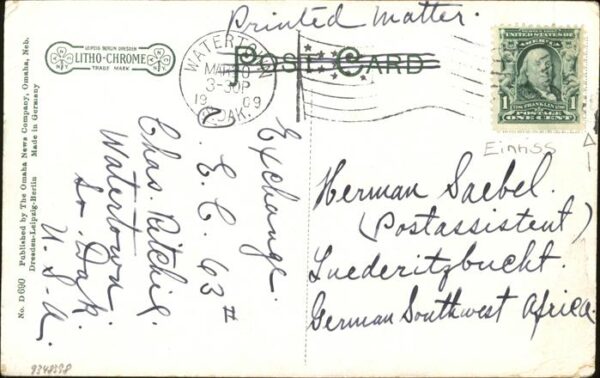 Printed Matter.
LEIPZIG BERLIN DRESDEN
LITHO-CHROME
TRADE MARK
WATERTOWN
MAR 10
3-30P
19 09
DAK.
POST CARD
UNITED STATES OF
AMERICA
1 1
POSTAGE
ONE CENT
Einriss
Exchange.
E.C. 63 II
Chas. Ritchie.
Watertown
So. Dak.
U.S.A.
Herman Saebel.
(Postassistent)
Luederitzbucht.
German Southwest Africa.
No. D 690 Published by The Omaha News Company, Omaha, Neb.
Dresden-Leipzig-Berlin Made in Germany
9348398